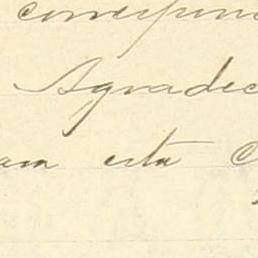 correspon
Agradec
ara esta C